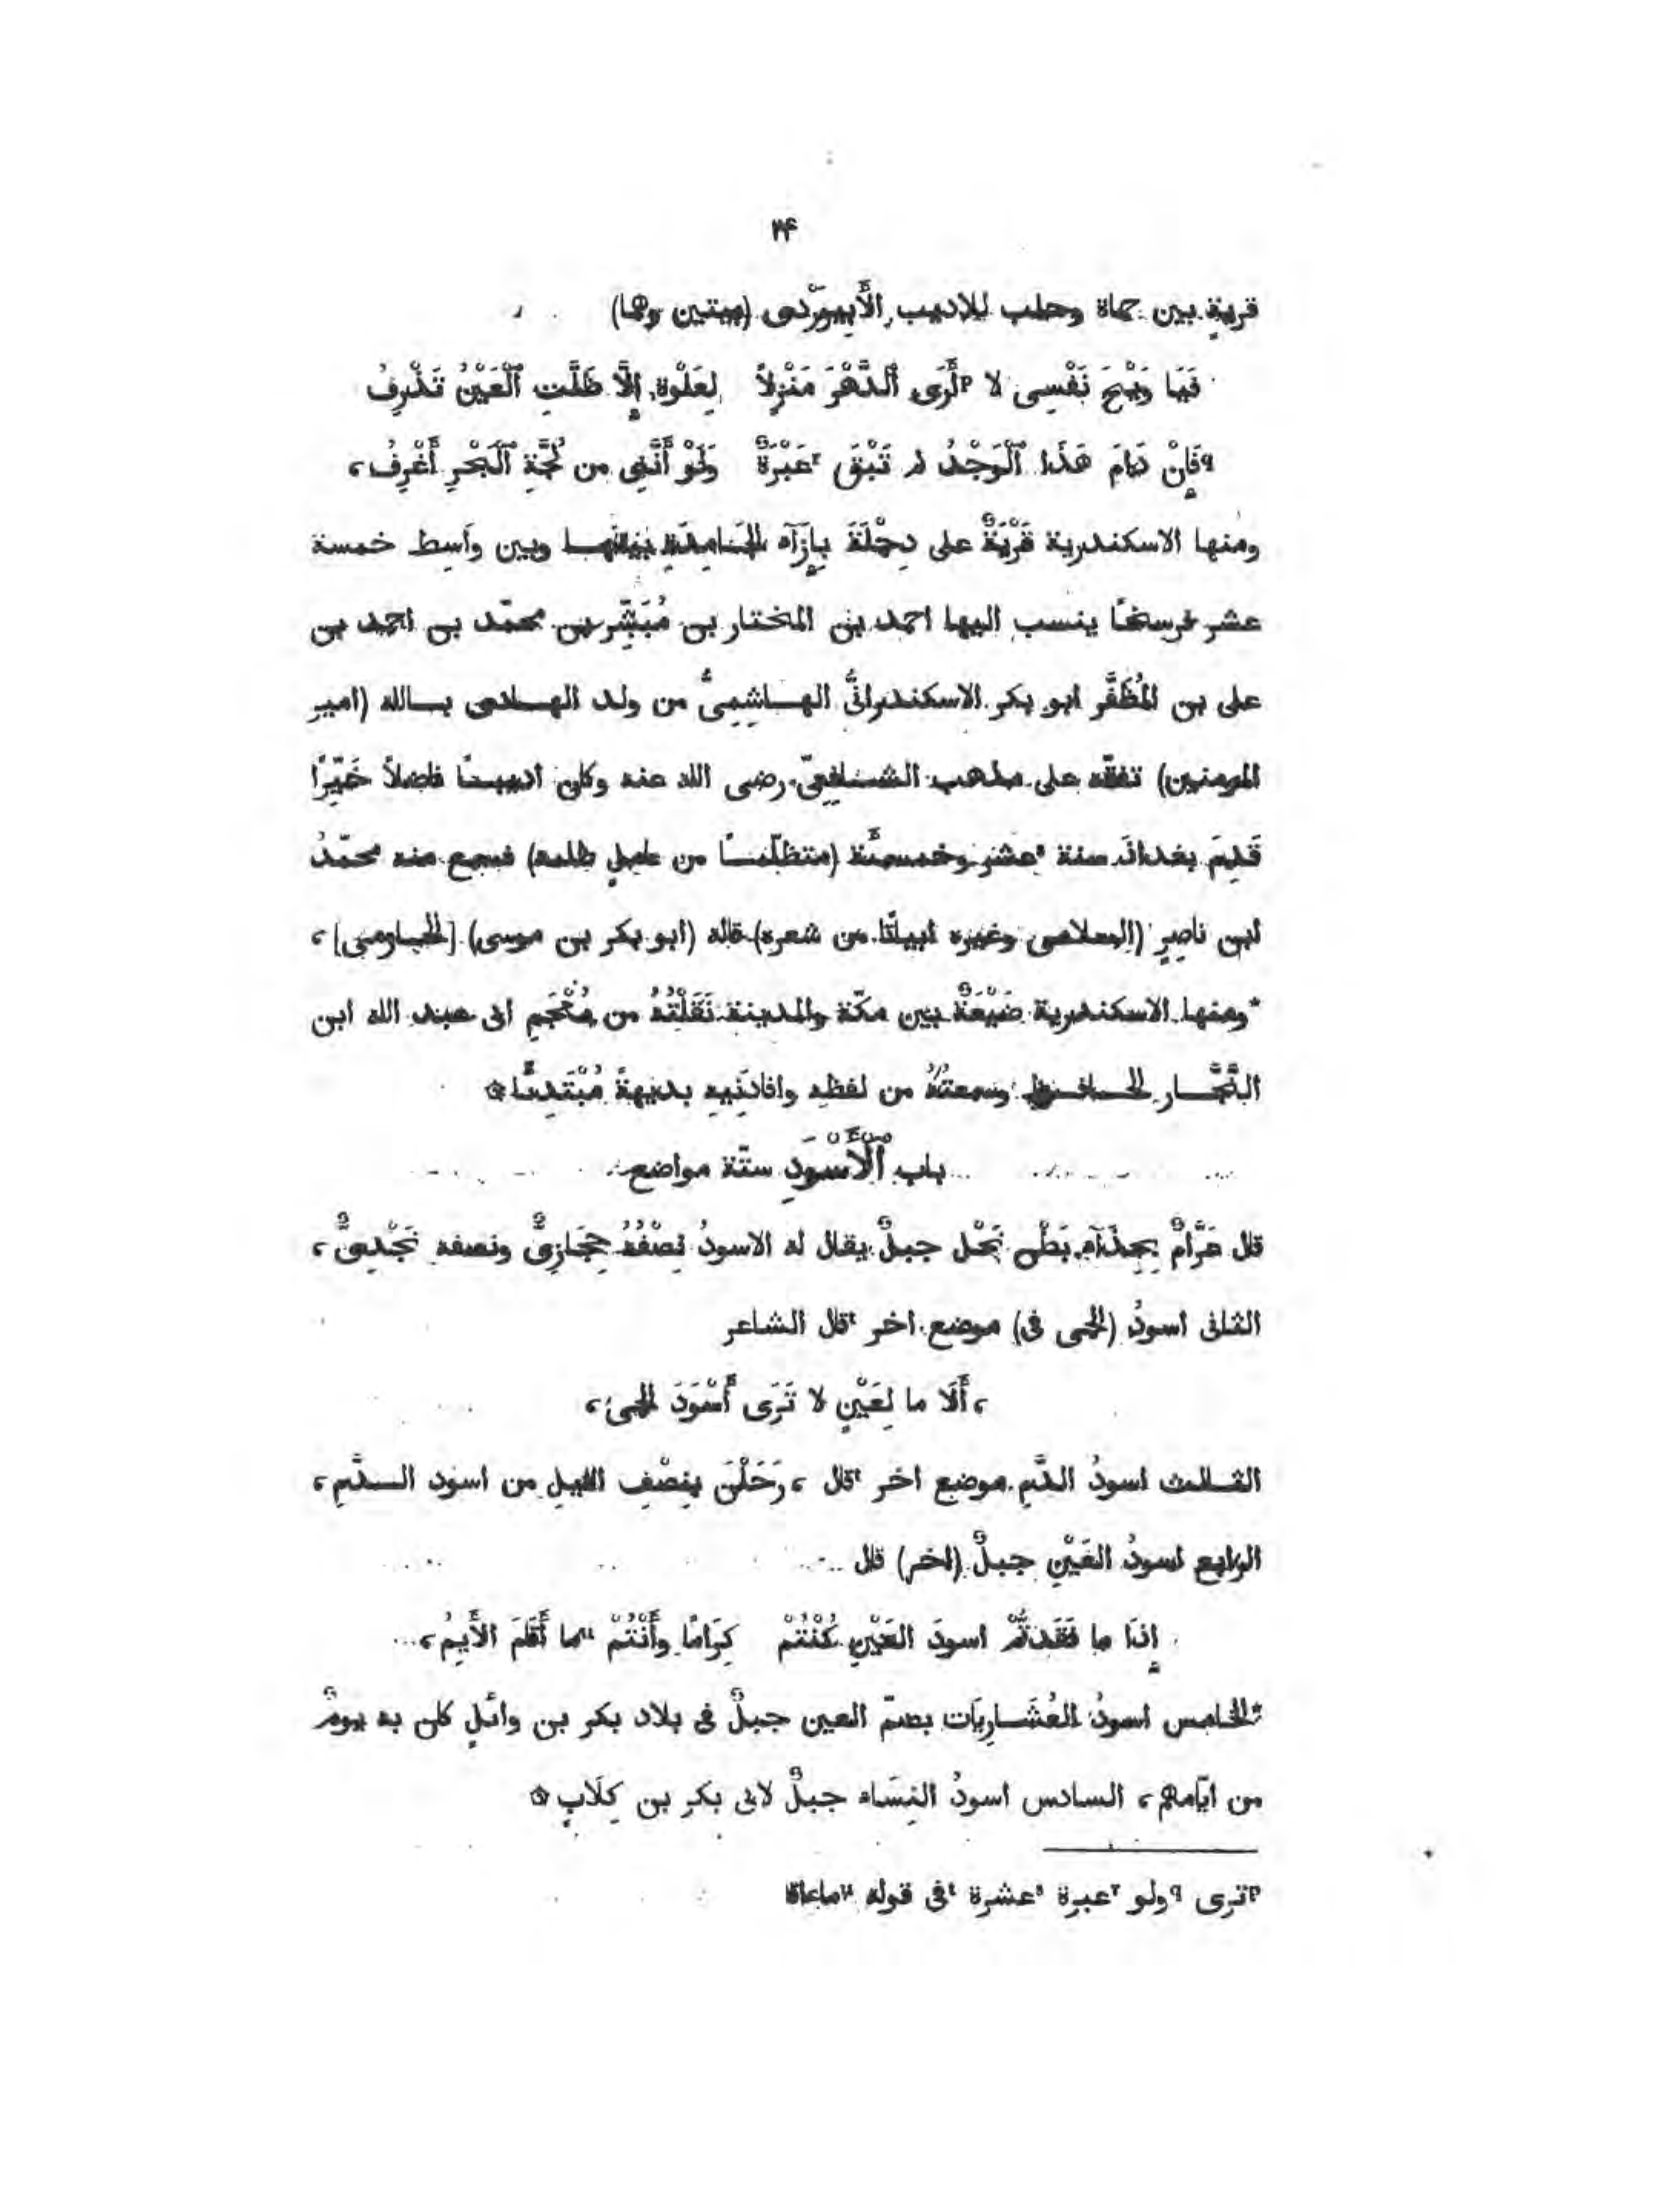 ٢٤
قرية بين حماة وحلب للاديب الأَبِيوَرْدى (ببيتين وهما)
فَيَا وَيْحَ نَفْسِى لا pأَرَى ٱلدَّهْرَ مَنْزِلاً لِعَلْوَةَ إِلَّا ظَلَّتِ ٱلْعَيْنُ تَذْرِفُ
qفَإِنْ دَامَ هَذَا ٱلْوَجْدُ لم تَبْقَ rعَبْرَةٌ وَلَوْ أَنَّنِى من لُجَّةِ ٱلْبَحْرِ أَغْرِفُ،
ومنها الاسكندرية قَرْيَةٌ على دِجْلَةَ بِإِزَآهِ الجَامِدَةِ بَيْنَهَا وبين وَاسِط خمسة
عشر فرسخًا ينسب اليها احمد بن المختار بن مُبَشِّر بن محمّد بن احمد بن
على بن المُظَفَّر ابو بكر الاسكندرانىُّ الهاشِمِىُّ من ولد الهادى بالله (امير
المومنين) تفقّه على مذهب الشافِعِىّ رضى الله عنه وكان اديبًا فاضلاً خَيِّرًا
قَدِمَ بغداذَ سنة sعشر وخمسمئَة (متظلّمًا من عاملٍ ظلمه) فسمع منه محمّدُ
ابن ناصِرٍ (السلامى وغيره ابياتًا من شعره) قاله (ابو بكر بن موسى) [الحازمى]،
*ومنها الاسكندرية ضَيْعَةٌ بين مكّة والمدينة نَقَلْتُهُ من مُعْجَمِ ابى عبد الله ابن
النَّجَّار الحافظ وسمعتُهُ من لفظه وافادَنِيهِ بديهةً مُبْتَدِئًا ۞
باب ٱلْأَسْوَدِ ستّة مواضع
قال عَرَّامٌ بِحِذَآهِ بَطْنِ نَخْل جبلٌ يقال له الاسودُ نِصْفُهُ حِجَازِىٌّ ونصفه نَجْدِىٌّ،
الثانى اسودُ (الحمى فى) موضع اخر tقال الشاعر
، أَلَا ما لِعَيْنٍ لا تَرَى أَسْوَدَ الحِمَى،
الثالث اسودُ الدَّمِ موضع اخر tقال ، رَحَلْنَ بِنِصْفِ الليلِ من اسود الدَّمِ،
الرابع اسودُ العَيْنِ جبلٌ (اخر) قال
إِذَا ما فَقَدتُّمْ اسودَ العَيْنِ كُنْتُمْ كِرَامًا وأَنْتُمْ uما أَقَامَ الأَيِمُ،
*الخامس اسودُ العُشَارِيَات بضمّ العين جبلٌ فى بلاد بكر بن وائلٍ كان به يومٌ
من ايّامهم، السادس اسودُ النِسَاء جبلٌ لابى بكر بن كِلَابٍ ۞
pترى qولو rعبرة sعشرة tفى قوله uماعاة